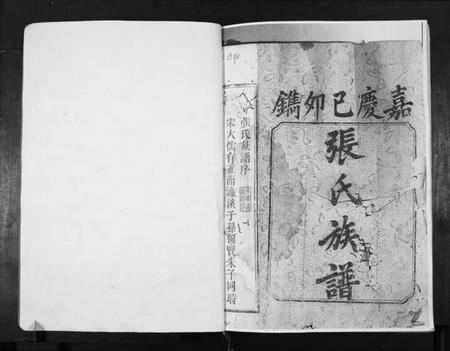 嘉慶己卯鐫
張氏族譜
張氏族譜序
宋大儒有五而濂溪子孫獨賢朱子同時